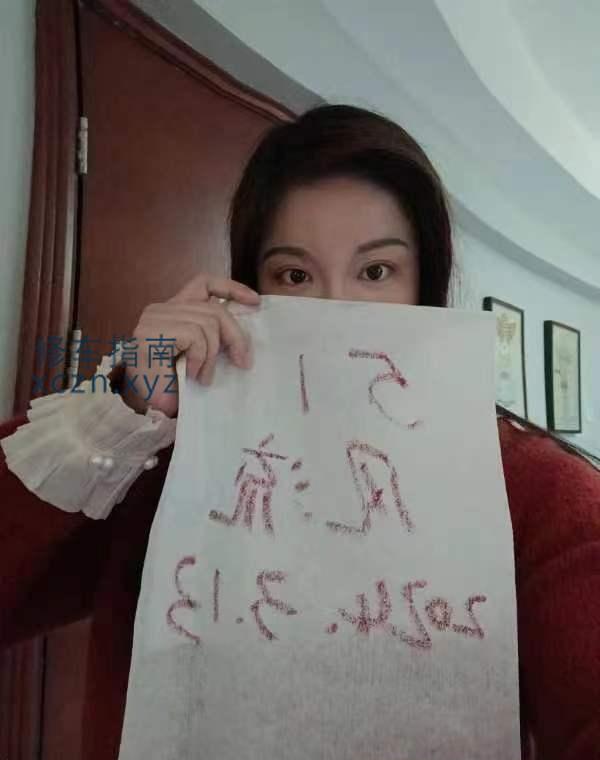 修车指南
xczn.xyz
51
风流
2024.3.13